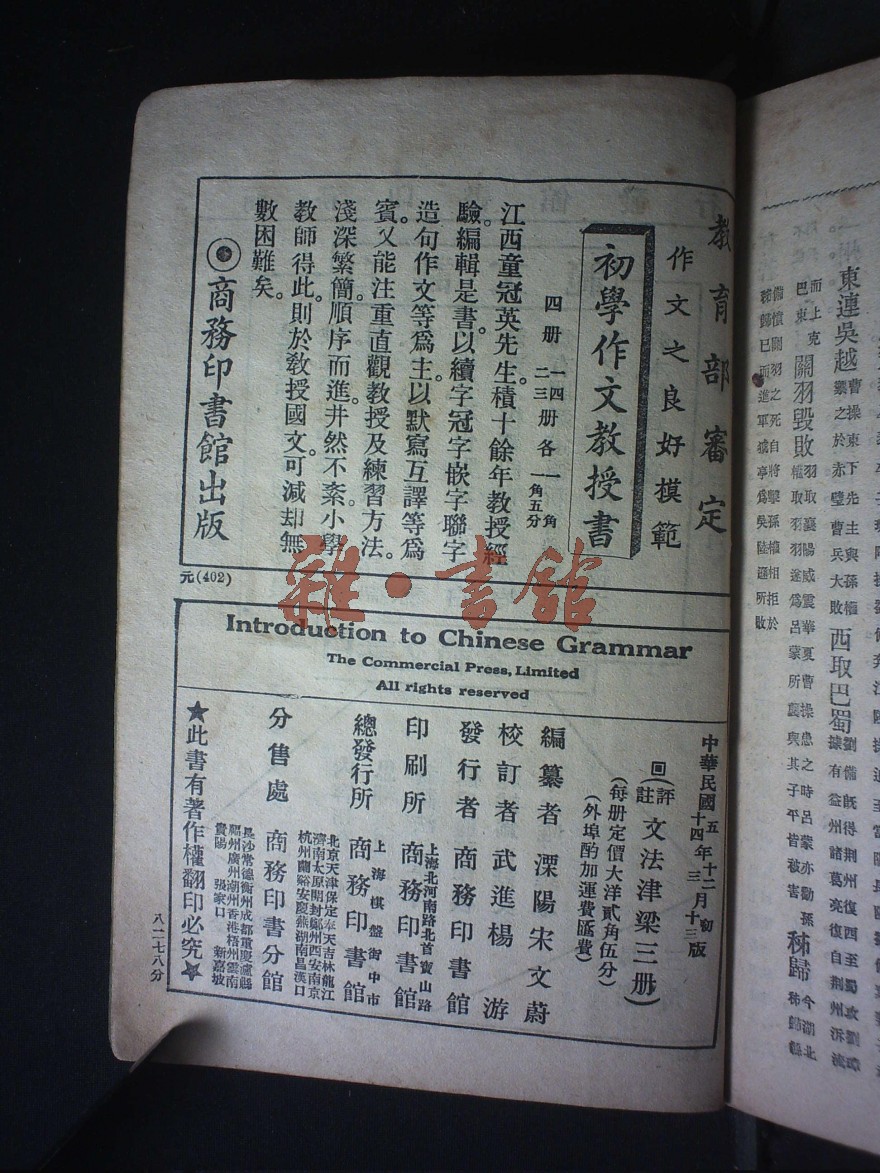 教育部審定
作文之良好模範
初學作文教授書
四册 一四 二三 册各 一角 一角五分
江西童冠英先生。積十餘年教授經
驗。編輯是書。以續字冠字嵌字聯字
造句作文等爲主。以默寫互譯等爲
賓。又能注重直觀教授及練習方法。
淺深繁簡。順序而進。井然不紊。小學
教師得此。則於教授國文。可減却無
數困難矣。
商務印書館出版
元(402)
雜·書舘
Introduction to Chinese Grammar
The Commercial Press, Limited
All rights reserved
中華民國五年十二月初版
十四年三月十三版
(評註文法津梁三册)
(每册定價大洋貳角伍分)
(外埠酌加運費匯費)
編纂者 溧陽宋文蔚
校訂者 武進楊游
發行者 商務印書館
印刷所 上海北河南路北首寶山路 商務印書館
總發行所 上海棋盤街中市 商務印書館
分售處 商務印書分館
北京天津保定奉天吉林龍江
濟南太原開封鄭州西安南京
杭州蘭谿安慶蕪湖南昌漢口
長沙常德衡州成都重慶瀘縣
福州廣州潮州香港梧州雲南
貴陽 張家口 新嘉坡
★此書有著作權翻印必究★
八一二七八分
東連吳越 曹操東下先主與孫權
禦之於赤壁曹兵大敗
西取巴蜀 劉備既得荆州復西至蜀攻劉璋
據有益州諸葛亮復自荆州泝流
而上克
巴東
關羽毀敗 羽取襄陽威震華夏曹操患之時呂蒙亦勸孫
權取羽羽遂爲呂蒙所襲與其子平皆被害
秭歸 今湖北
秭歸縣
備憤關羽之死自將擊孫權相拒於
秭歸已而進軍猇亭爲吳陸遜所敗